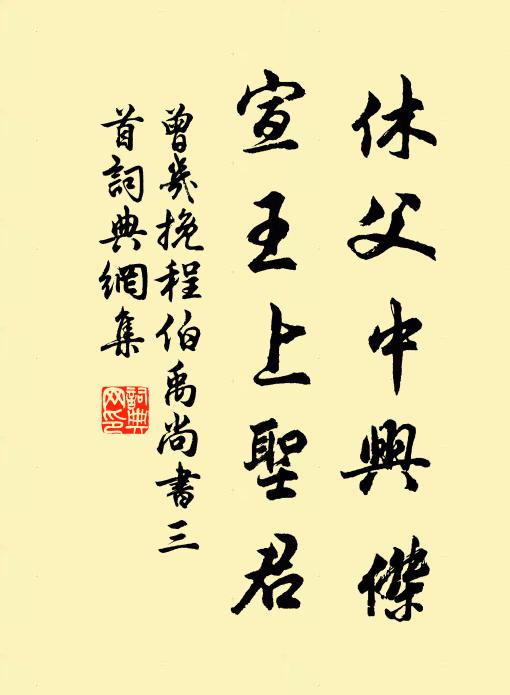 休父中興傑
宣王上聖君
曾幾挽程伯禹尚書三
首詞典網集
詞典
网印